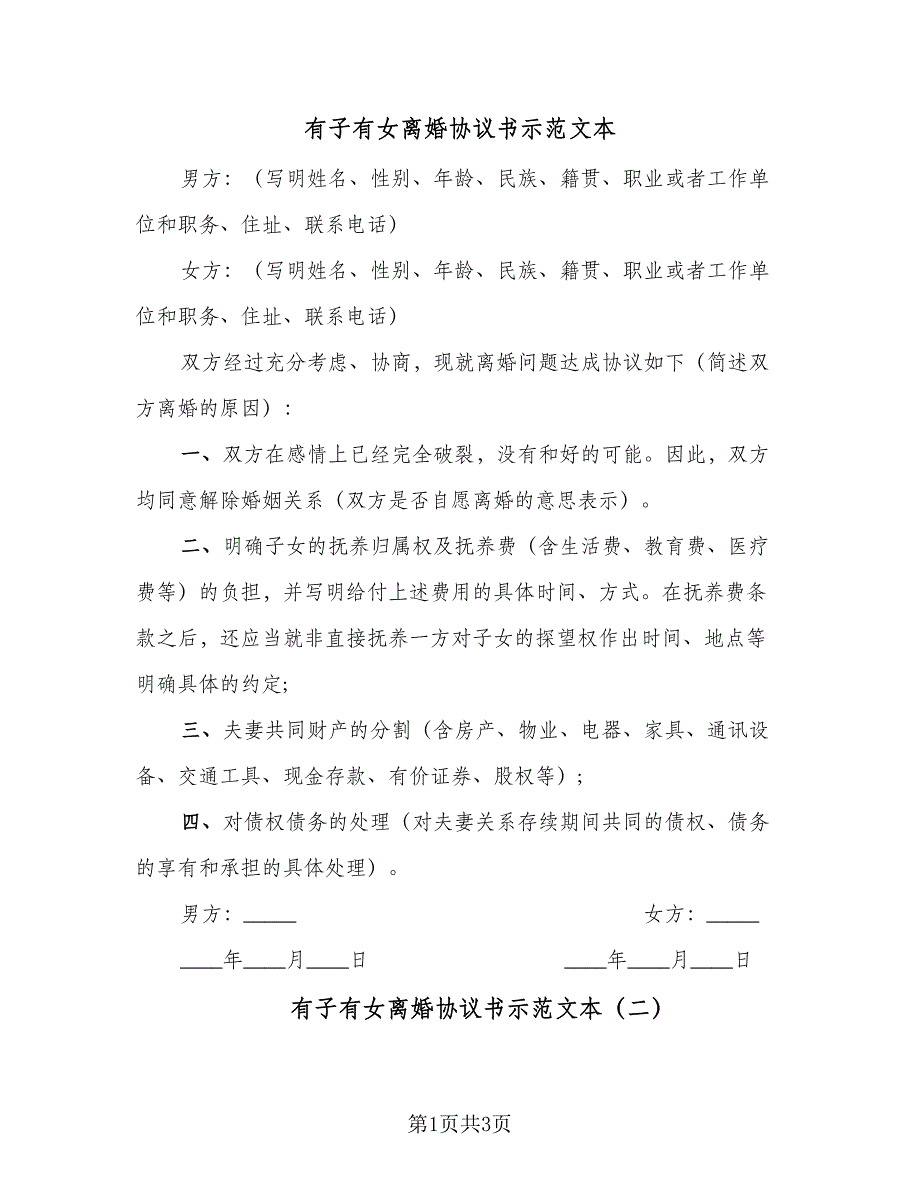 有子有女离婚协议书示范文本
男方：（写明姓名、性别、年龄、民族、籍贯、职业或者工作单
位和职务、住址、联系电话）
女方：（写明姓名、性别、年龄、民族、籍贯、职业或者工作单
位和职务、住址、联系电话）
双方经过充分考虑、协商，现就离婚问题达成协议如下（简述双
方离婚的原因）：
一、双方在感情上已经完全破裂，没有和好的可能。因此，双方
均同意解除婚姻关系（双方是否自愿离婚的意思表示）。
二、明确子女的抚养归属权及抚养费（含生活费、教育费、医疗
费等）的负担，并写明给付上述费用的具体时间、方式。在抚养费条
款之后，还应当就非直接抚养一方对子女的探望权作出时间、地点等
明确具体的约定;
三、夫妻共同财产的分割（含房产、物业、电器、家具、通讯设
备、交通工具、现金存款、有价证券、股权等）;
四、对债权债务的处理（对夫妻关系存续期间共同的债权、债务
的享有和承担的具体处理）。
男方：_____ 女方：_____
____年____月____日 ____年____月____日
有子有女离婚协议书示范文本（二）
第1页共3页